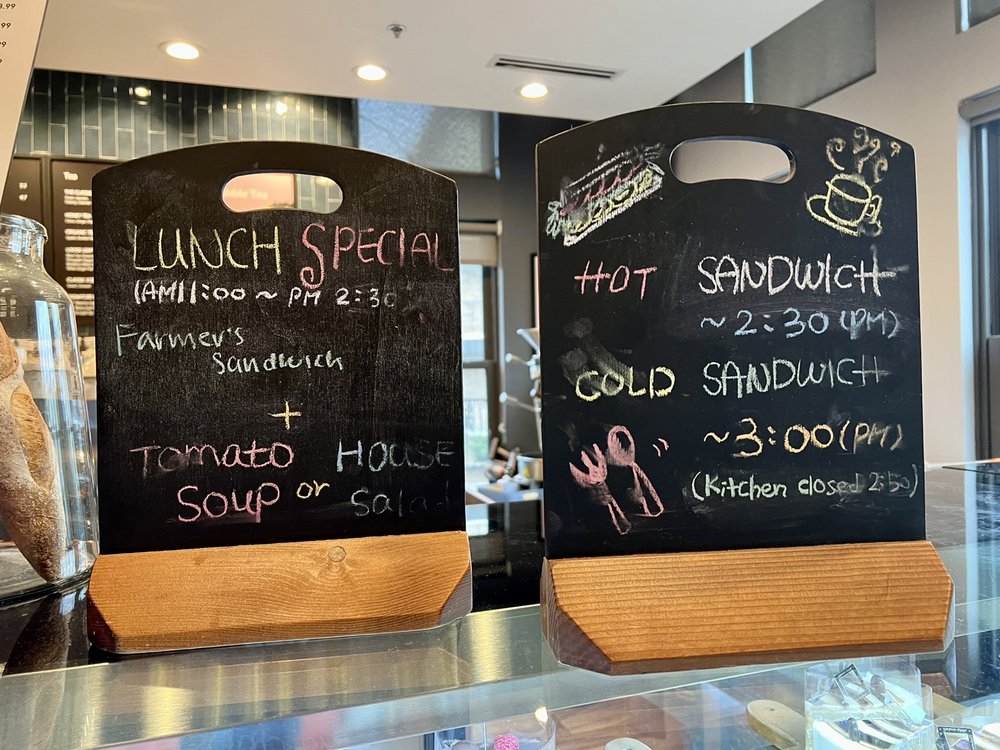 LUNCH SPECIAL
(AM)11:00 ~ PM 2:30
Farmer's
Sandwich
+
Tomato
Soup or
House
Salad
HOT SANDWICH
~2:30 (PM)
COLD SANDWICH
~3:00 (PM)
(Kitchen closed 2:50)
Tea